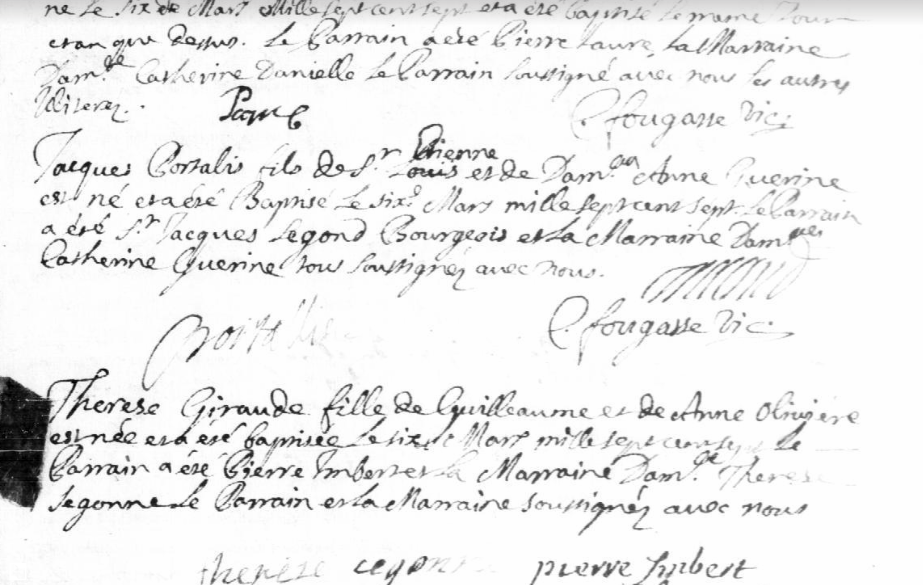 ne le six de Mars Mille sept cent sept et a été baptisé le même Jour
et an que dessus. Le Parrain a été Pierre Faure La Marraine
Dam.lle Catherine Danielle Le Parrain Soussigné avec nous les autres
Illiterez.
P. fougasse Vic:
Etienne
Jacques Portalis fils de S.r Louis et de Dam.lle Anne Guerine
est né et a été Baptisé Le six.e Mars mille sept cent sept. Le Parrain
a été S.r Jacques Segond Bourgeois et La Marraine Dam.lle
Catherine Guerine tous Soussignéz avec nous.
P. fougasse Vic:
Portallis
Therese Giraude fille de Guilleaume et de Anne Olivière
est née et a été baptisée Le six.e Mars mille sept cent sept Le
Parrain a été Pierre Imbert et La Marraine Dam.lle Therese
Segonne Le Parrain et La Marraine soussignéz avec nous
therese cegonne pierre Imbert